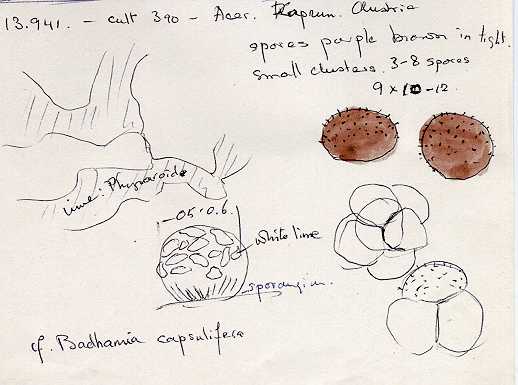 13.941. - cult 390 - Acer. Kaprun. Austria
spores purple brown in tight.
small clusters. 3-8 spores
9 x 10-12.
lime: Physaroid
-05-0.6.
white lime
sporangium.
cf. Badhamia capsulifera